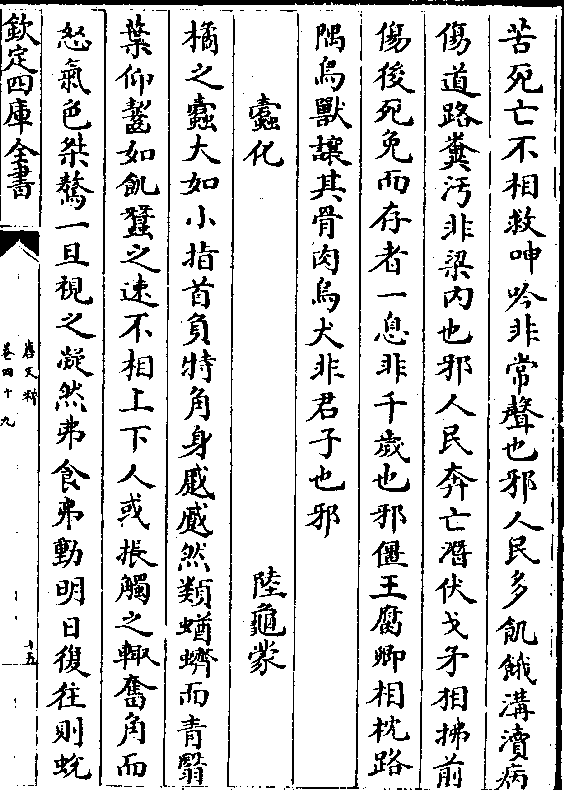 苦死亡不相救呻吟非常聲也邪人民多飢餓溝瀆病
傷道路糞汚非梁肉也邪人民奔亡潛伏戈矛相拂前
傷後死免而存者一息非千歲也邪僵王腐卿相枕路
隅鳥獸讓其骨肉烏犬非君子也邪
蠹化 陸龜蒙
橘之蠹大如小指首負特角身蹙蹙然類蝤蠐而青翳
葉仰齧如飢蠶之速不相上下人或棖觸之輒奮角而
怒氣色桀驁一旦視之凝然弗食弗動明日復往則蛻
欽定四庫全書
唐文粹
卷四十九
十五